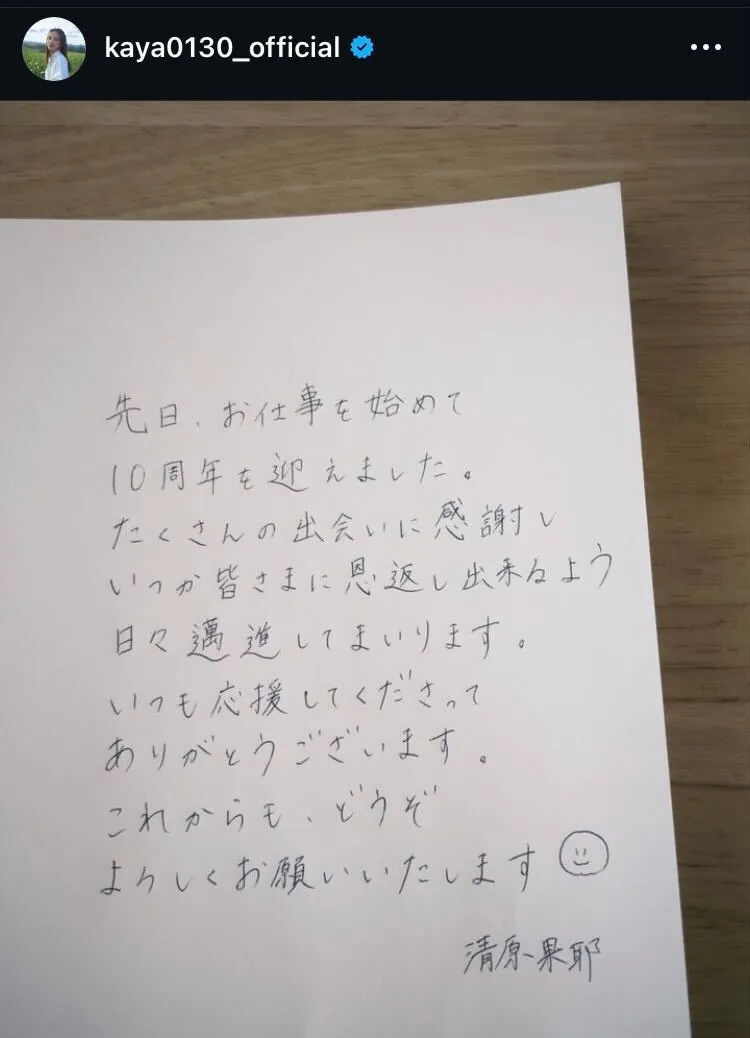 kaya0130_official
先日、お仕事を始めて
10周年を迎えました。
たくさんの出会いに感謝し
いつか皆さまに恩返し出来るよう
日々邁進してまいります。
いつも応援してくださって
ありがとうございます。
これからも、どうぞ
よろしくお願いいたします
清原果耶